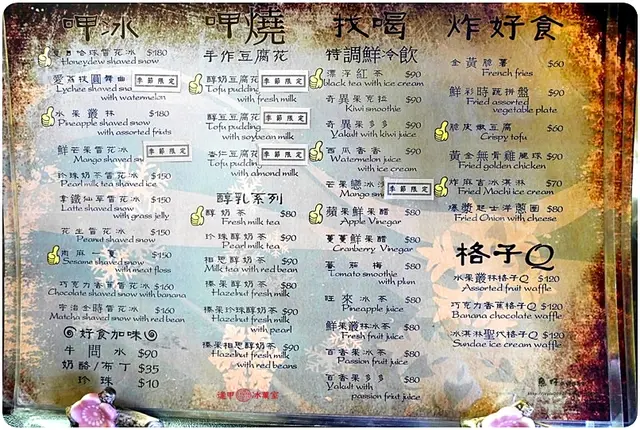 呷冰
夏日哈味雪花冰 $180
Honeydew shaved snow
愛荔枝圓舞曲 季節限定
Lychee shaved snow
with watermelon
水果叢林 $180
Pineapple shaved snow
with assorted fruits
鮮芒果雪花冰 季節限定
Mango shaved
珍珠奶茶雪花冰 $150
Pearl milk tea shaved ice
拿鐵仙草雪花冰 $150
Latte shaved snow
with grass jelly
花生雪花冰 $150
Peanut shaved snow
芝麻一 $150
Sesame shaved snow
with meat floss
巧克力香蕉雪花冰 $160
Chocolate shaved snow with banana
宇治金時雪花冰 $160
Matcha shaved snow with red bean
好食加味
牛問水 $90
奶酪/布丁 $35
珍珠 $10
呷燒
手作豆腐花
醇奶豆腐花 季節限定
Tofu pudding
with fresh milk
醇豆豆腐花 季節限定
Tofu pudding
with soybean milk
杏仁豆腐花 季節限定
Tofu pudding
with almond milk
醇乳系列
醇奶茶 $80
Fresh milk tea
珍珠醇奶茶 $90
Pearl milk tea
相思醇奶茶 $90
Milk tea with red bean
榛果醇奶茶 $80
Hazelnut fresh
milk
榛果珍珠醇奶茶 $90
Hazelnut fresh milk
with pearl
榛果相思醇奶茶 $90
Hazelnut fresh milk
with red beans
逢甲 冰菓室
找喝
特調鮮冷飲
漂浮紅茶 $90
black tea with ice cream
奇異果克拉 $90
Kiwi smoothie
奇異果多多 $90
Yakult with kiwi juice
西瓜香香 $90
Watermelon juice
with ice cream
芒果戀冰沙 季節限定
Mango smoothie
蘋果鮮果醋 $80
Apple Vinegar
蔓蔓鮮果醋 $80
Cranberry Vinegar
蕃茄梅 $80
Tomato smoothie
with plum
旺來冰茶 $80
Pineapple juice
鮮果叢林冰茶 $80
Fresh fruit juice
百香果冰茶 $80
Passion fruit juice
百香果多多 $80
Yakult with
passion friut juice
炸好食
金黃脆薯 $60
French fries
鮮彩時蔬拼盤 $90
Fried assorted
vegetable plate
脆皮嫩豆腐 $60
Crispy tofu
黃金無骨雞腿球 $90
Fried golden chicken
炸麻吉冰淇淋 $70
Fried Mochi ice cream
爆漿起士洋蔥圈 $80
Fried Onion with cheese
格子Q
水果叢林格子Q $120
Assorted fruit waffle
巧克力香蕉格子Q $120
Banana chocolate waffle
冰淇淋聖代格子Q $130
Sundae ice cream waffle